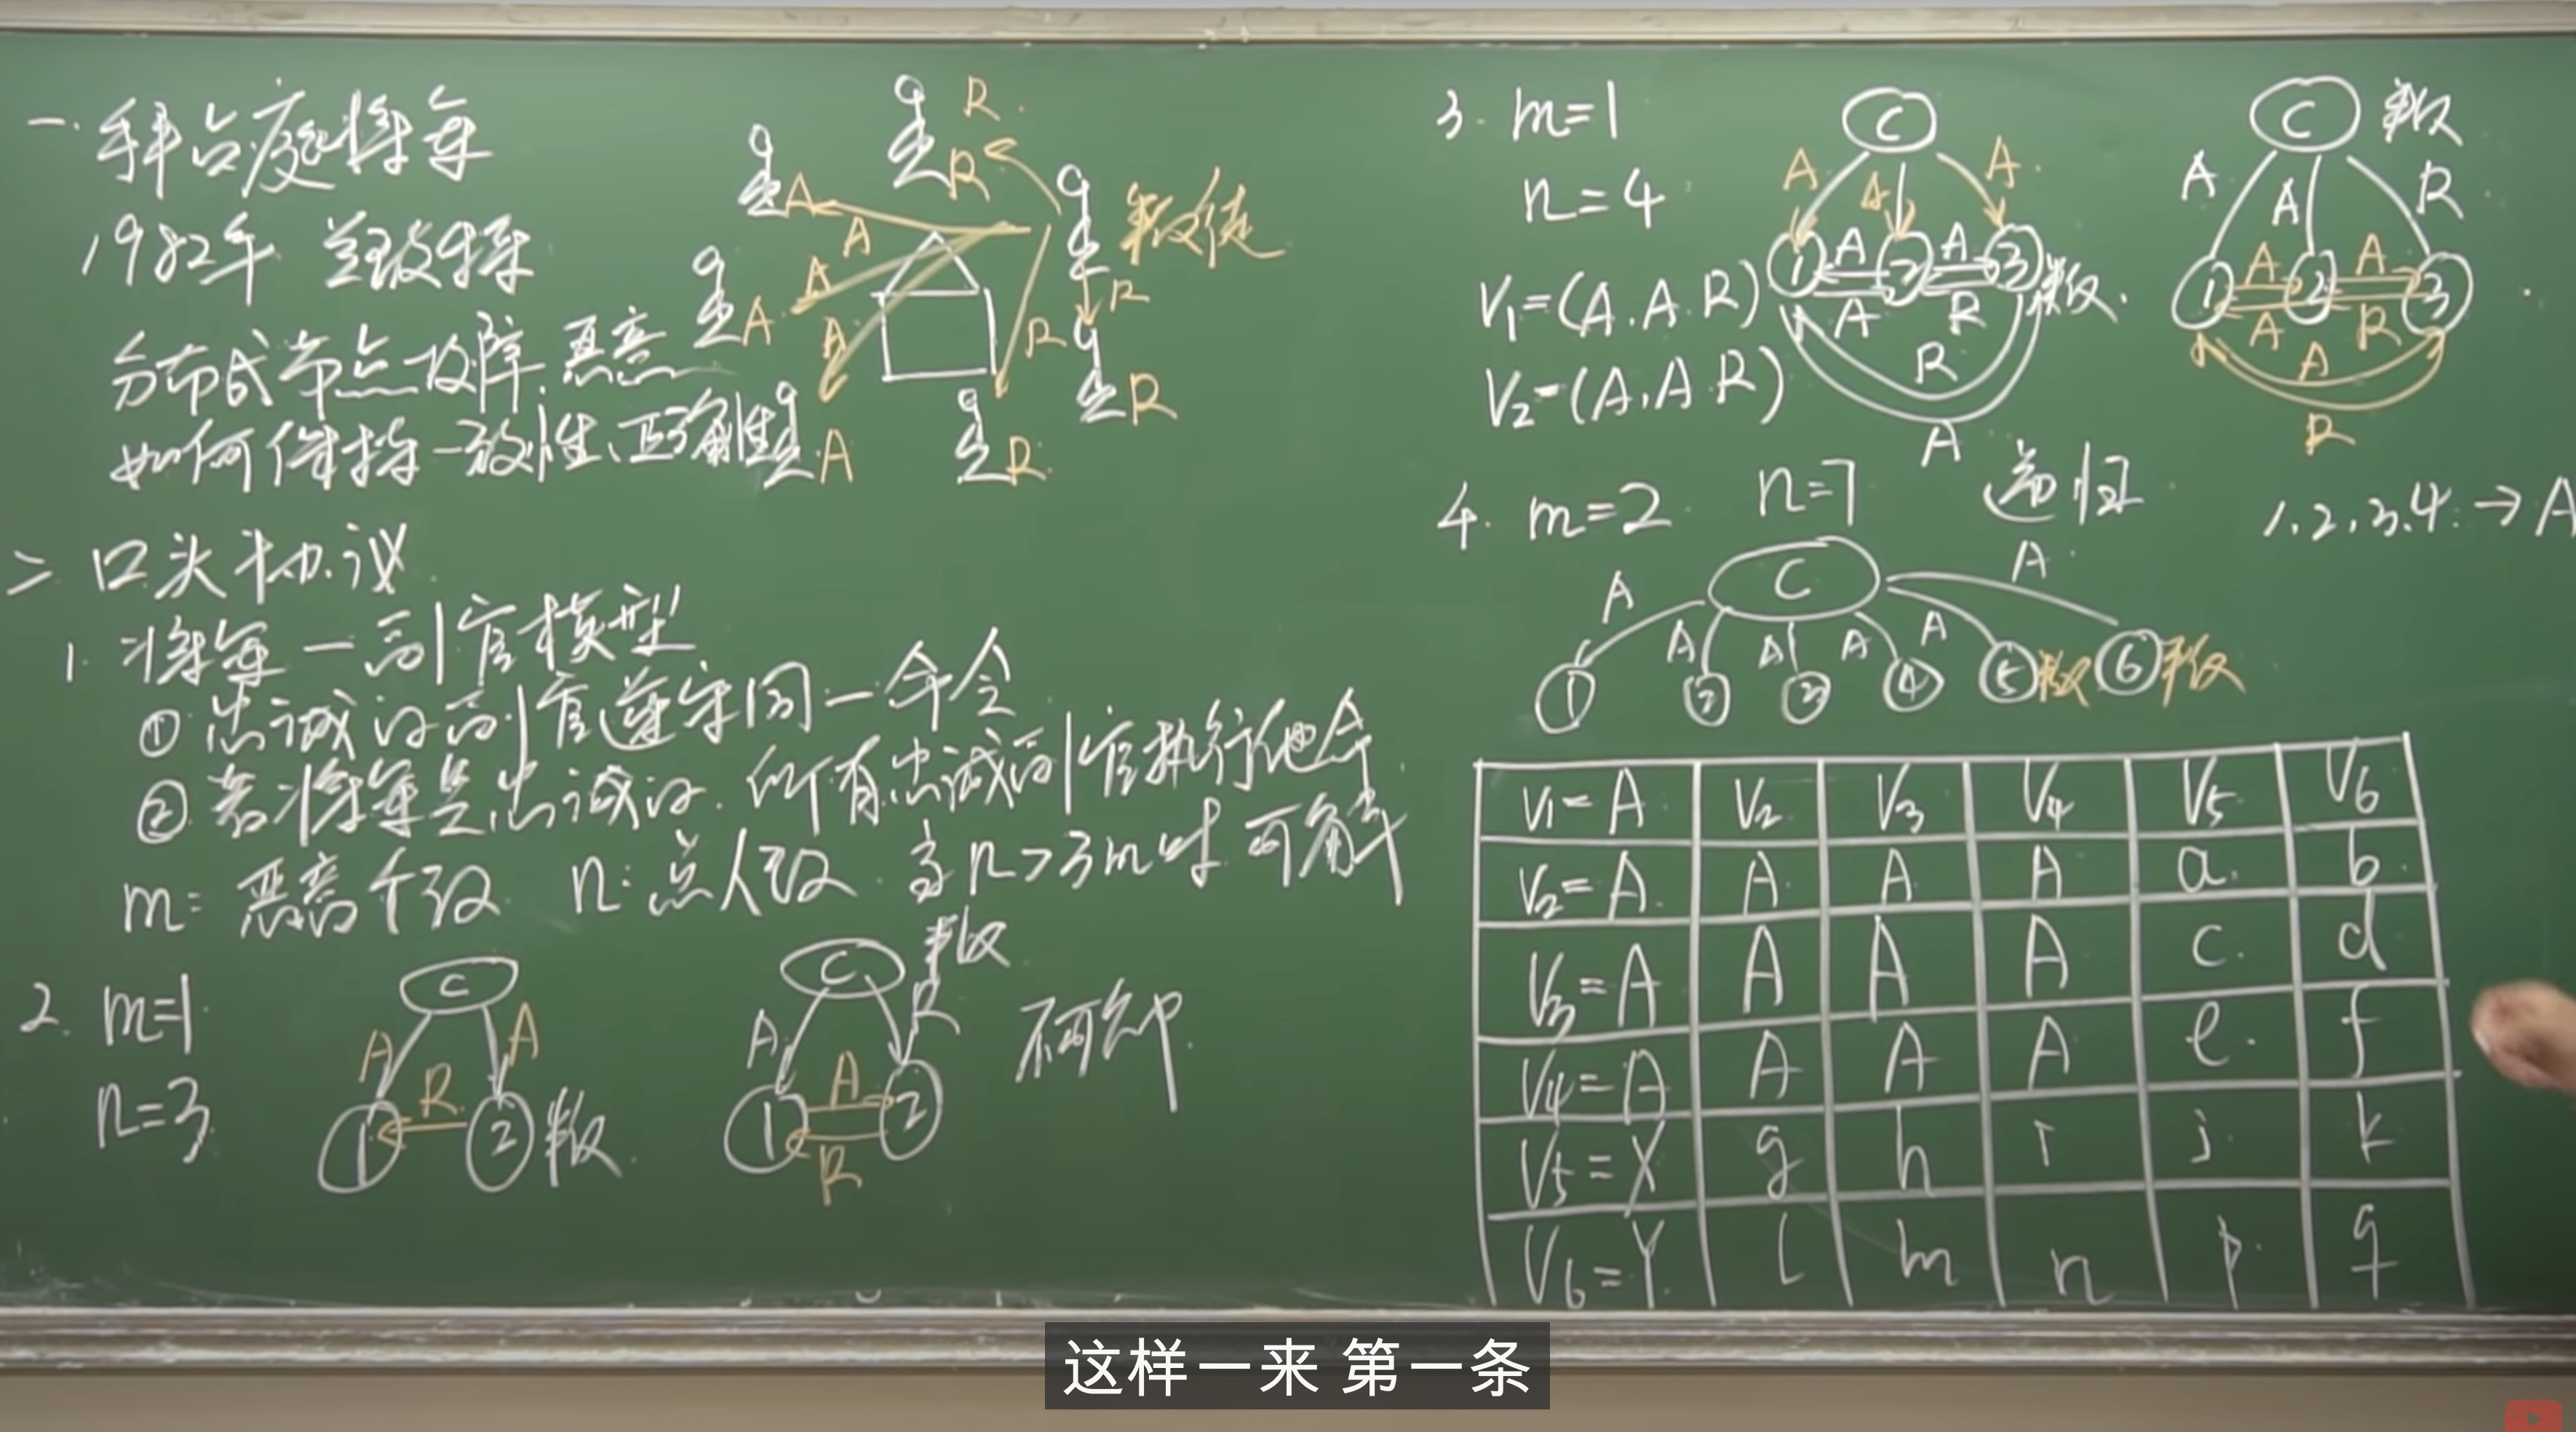 一. 拜占庭将军
1982年 兰玻特
分布式节点故障.恶意
如何保持一致性、正确性
R.
R
A
A
叛徒
A
A
A
R
R
R
A
R.
二 口头协议
1. 将军—副官模型
① 忠诚的副官遵守同一命令
② 若将军是忠诚的.所有忠诚副官执行他命
m: 恶意个数 n:总人数 当n>3m时 可解
2. m=1
n=3
C
A A
R
1 2 叛
C 叛
A R
A
1 2
R
不可解
3. m=1
n=4
V1=(A.A.R)
V2=(A,A.R)
C
A A A.
1 A 2 A 3 叛.
A R
R
A
C 叛
A A R
1 A 2 A 3
A R
A
R
4. m=2 n=7 递归 1.2.3.4. → A
C
A A A A A A
1 2 3 4 5 叛 6 叛
V1=A V2 V3 V4 V5 V6
V2=A. A. A A a. b.
V3=A A A A c. d
V4=A A A A e. f
V5=X g h i j k
V6=Y. l m n p. q
这样一来 第一条